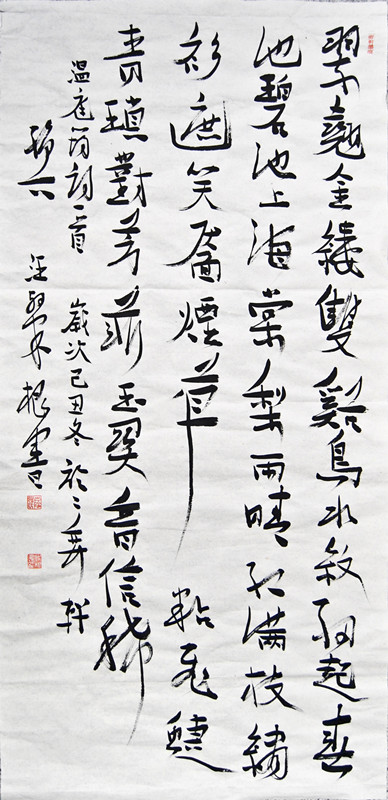 翠翹金縷雙谿鳥水紋細起春
池碧池上海棠梨雨晴紅滿枝繡
衫遮笑靨煙草粘飛蝶
青瑣對芳菲玉關音信稀
溫庭筠詞一首 歲次己丑冬於軒
汪根書